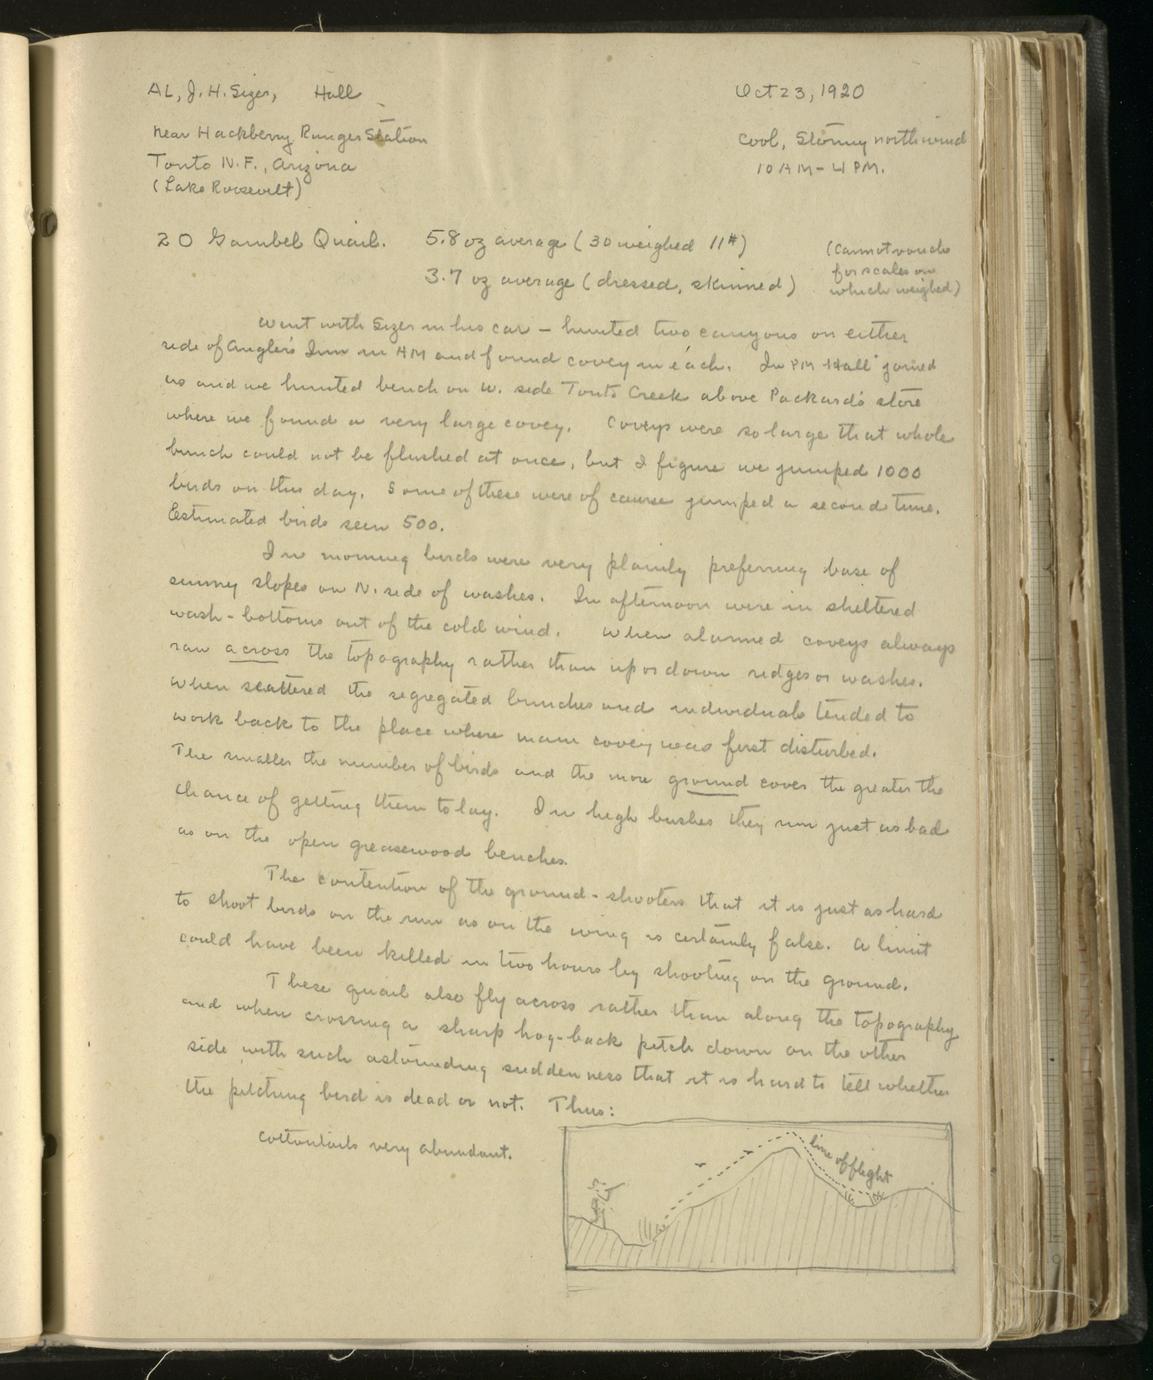 AL, J. H. Sizer, Hall
Oct 23, 1920
near Hackberry Ranger Station
Cool, Stormy north wind
Tonto N.F., Arizona
10 AM - 4 PM.
(Lake Roosevelt)
20 Gambel Quail. 5.8 oz average (30 weighed 11#)
3.7 oz average (dressed, skinned)
(Cannot vouch
for scales on
which weighed)
Went with Sizer in his car - hunted two canyons on either
side of Angler's Inn in AM and found covey in each. In PM Hall joined
us and we hunted bench on W. side Tonto Creek above Packard's store
where we found a very large covey. Coveys were so large that whole
bunch could not be flushed at once, but I figure we jumped 1000
birds on this day. Some of these were of course jumped a second time.
Estimated birds seen 500.
In morning birds were very plainly preferring base of
sunny slopes on N. side of washes. In afternoon were in sheltered
wash-bottoms out of the cold wind. When alarmed coveys always
ran across the topography rather than up or down ridges or washes.
When scattered the segregated bunches and individuals tended to
work back to the place where main covey was first disturbed.
The smaller the number of birds and the more ground cover the greater the
chance of getting them to lay. In high bushes they run just as bad
as on the open greasewood benches.
The contention of the ground-shooters that it is just as hard
to shoot birds on the run as on the wing is certainly false. A limit
could have been killed in two hours by shooting on the ground.
These quail also fly across rather than along the topography
and when crossing a sharp hog-back pitch down on the other
side with such astounding suddenness that it is hard to tell whether
the pitching bird is dead or not. Thus:
Cottontails very abundant.
line of flight